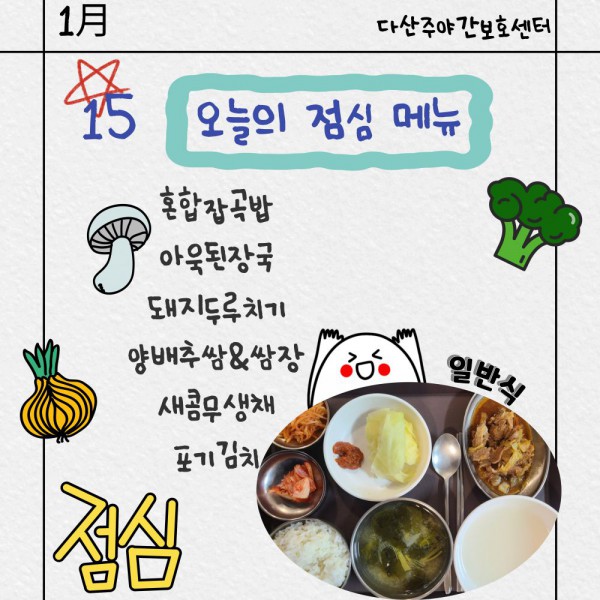 1月
다산주야간보호센터
15
오늘의 점심 메뉴
혼합잡곡밥
아욱된장국
돼지두루치기
양배추쌈&쌈장
새콤무생채
포기김치
일반식
점심